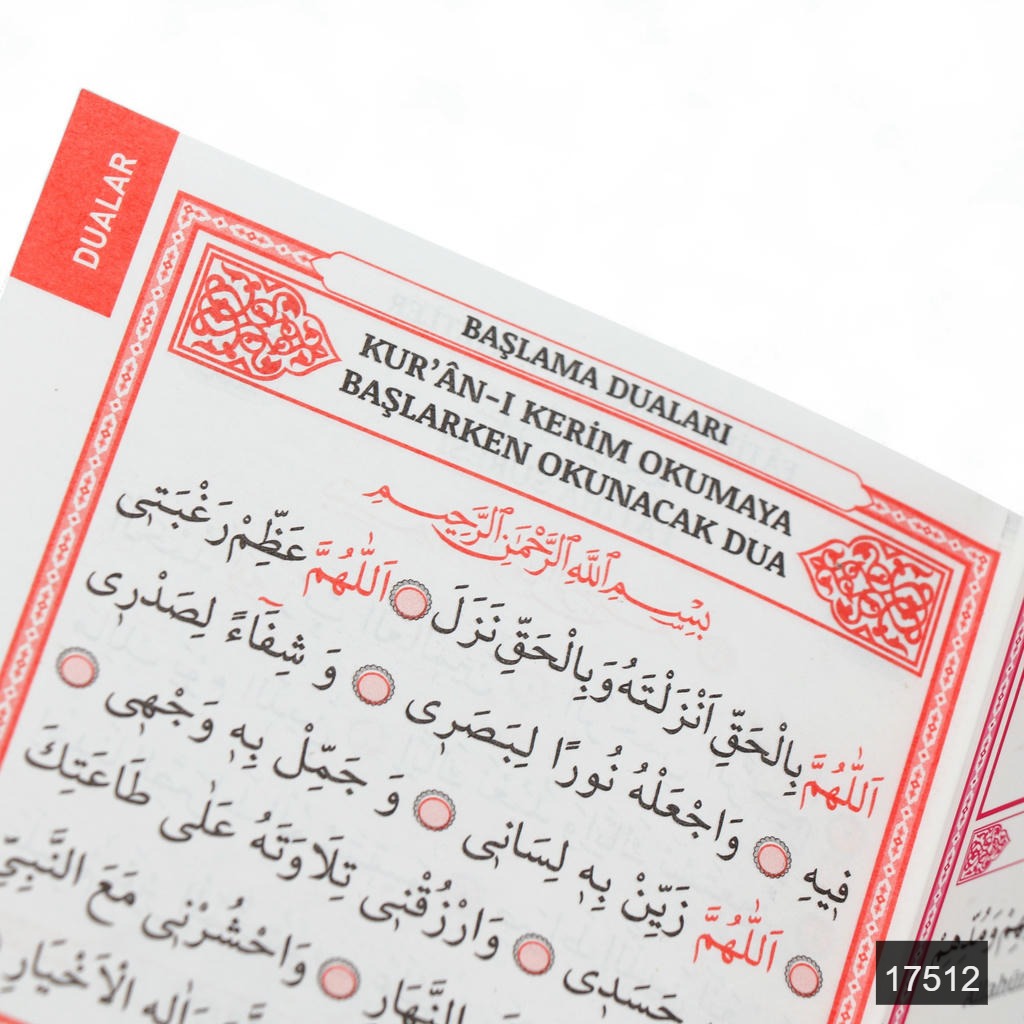 DUALAR
BAŞLAMA DUALARI
KUR’ÂN-I KERİM OKUMAYA
BAŞLARKEN OKUNACAK DUA
بِسْمِ اللّٰهِ الرَّحْمٰنِ الرَّحِيمِ
اَللّٰهُمَّ بِالْحَقِّ اَنْزَلْتَهُ وَبِالْحَقِّ نَزَلَ اَللّٰهُمَّ عَظِّمْ رَغْبَتِى
فِيهِ وَاجْعَلْهُ نُورًا لِبَصَرِى وَ شِفَٓاءً لِصَدْرِى
اَللّٰهُمَّ زَيِّنْ بِهِ لِسَانِى وَ جَمِّلْ بِهِ وَجْهِى
حَسَدِى وَارْزُقْنِى تِلَاوَتَهُ عَلٰى طَاعَتِكَ
النَّهَارِ وَاحْشُرْنِى مَعَ النَّبِىِّ
وَاٰلِهِ الْاَخْيَارِ
17512